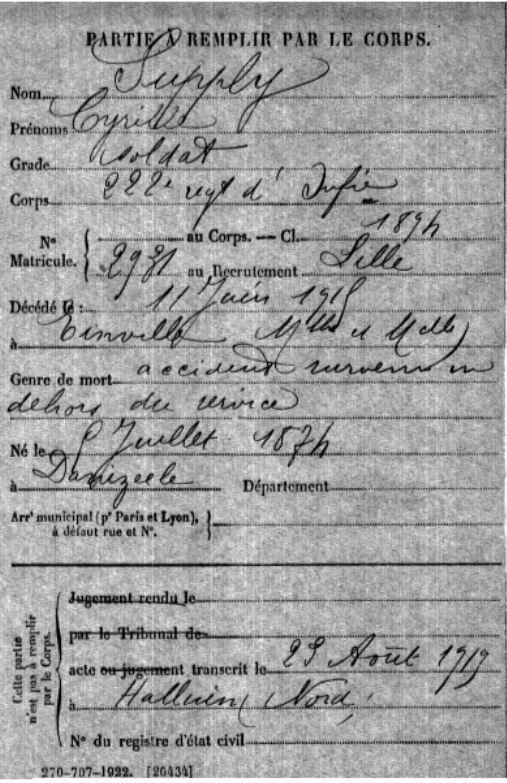 PARTIE À REMPLIR PAR LE CORPS.
Nom Supply
Prénoms Cyrille
Grade soldat
Corps 222e regt d' Infie
Nº Matricule. { au Corps. — Cl. 1894
2981 au Recrutement Lille
Décédé le : 11 Juin 1915
à Einville
Genre de mort accident survenu en
dehors du service
Né le Juillet 1874
à Département
Arrt municipal (pr Paris et Lyon), }
à défaut rue et Nº.
Cette partie
n'est pas à remplir
par le Corps.
Jugement rendu le
par le Tribunal de
acte ou jugement transcrit le 29 Août 1919
à Halluin (Nord)
Nº du registre d'état civil
270-707-1922. [26434]